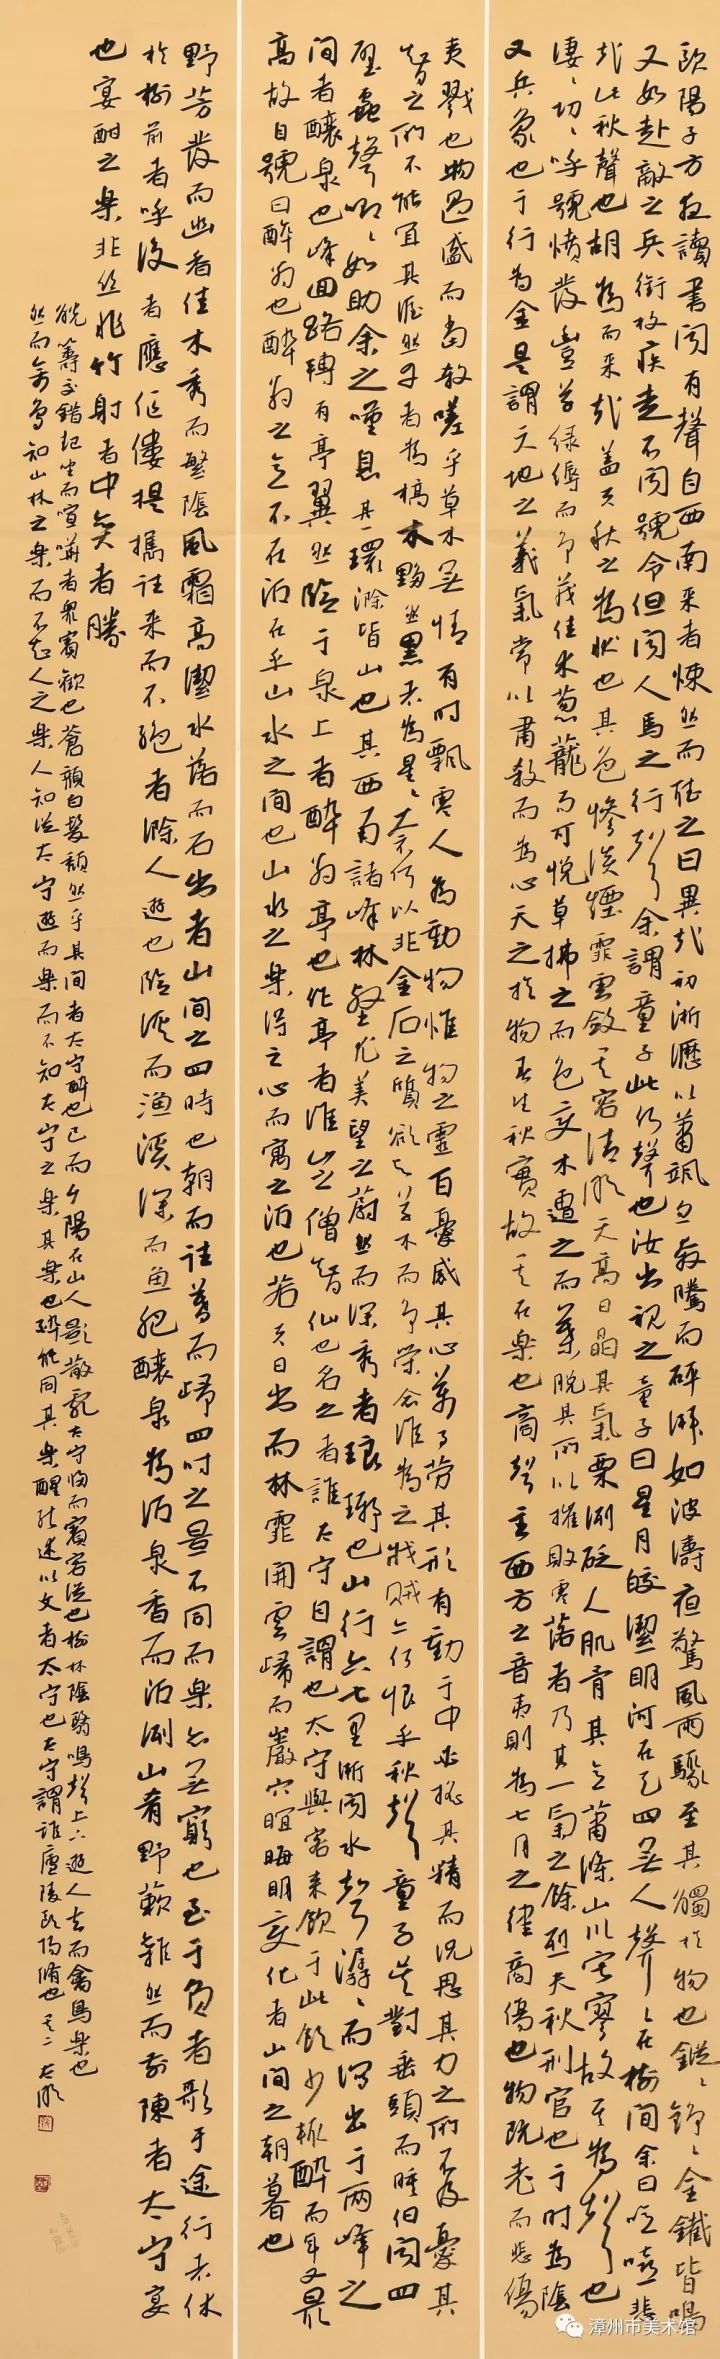 欧陽子方夜讀書聞有聲自西南来者悚然而聽之曰異哉初淅瀝以蕭颯忽奔騰而砰湃如波濤夜驚風雨驟至其觸於物也鏦〻錚〻金鐵皆鳴
又如赴敵之兵銜枚疾走不聞號令但聞人馬之行聲余謂童子此何聲也汝出視之童子曰星月皎潔明河在天四無人聲〻在樹間余曰噫嘻悲
哉此秋聲也胡為而来哉蓋夫秋之為狀也其色慘淡煙霏雲斂其容清明天高日晶其氣栗冽砭人肌骨其意蕭條山川寂寥故其為聲也
淒〻切〻呼號憤發豐草綠縟而争茂佳木蔥蘢而可悅草拂之而色变木遭之而葉脫其所以摧敗零落者乃其一氣之餘烈夫秋刑官也于時為陰
又兵象也于行為金是謂天地之義氣常以肅殺而為心天之於物春生秋實故其在樂也商聲主西方之音夷則為七月之律商傷也物既老而悲傷
夷戮也物過盛而當殺嗟乎草木無情有時飄零人為動物惟物之靈百憂感其心萬事勞其形有動于中必搖其精而況思其力之所不及憂其
智之所不能宜其渥然丹者為槁木黟然黑者為星〻奈何以非金石之質欲與草木而争榮念誰為之戕賊亦何恨乎秋聲童子莫對垂頭而睡但聞四
壁蟲聲唧〻如助余之嘆息 其一 環滁皆山也其西南諸峰林壑尤美望之蔚然而深秀者琅琊也山行六七里漸聞水聲潺〻而瀉出于两峰之
间者釀泉也峰回路轉有亭翼然臨于泉上者醉翁亭也作亭者誰山之僧智仙也名之者誰太守自謂也太守與客来飲于此飲少輒醉而年又最
高故自號曰醉翁也醉翁之意不在酒在乎山水之間也山水之樂得之心而寓之酒也若夫日出而林霏開雲歸而巖穴暝晦明变化者山間之朝暮也
野芳發而幽香佳木秀而繁陰風霜高潔水落而石出者山間之四時也朝而往暮而歸四时之景不同而樂亦無窮也至于負者歌于途行者休
於樹前者呼後者應傴僂提攜往来而不絕者滁人遊也臨溪而漁溪深而魚肥釀泉為酒泉香而酒冽山肴野蔌雜然而前陳者太守宴
也宴酣之樂非丝非竹射者中弈者勝
觥籌交錯起坐而喧嘩者眾賓歡也蒼顏白髮頹然乎其間者太守醉也已而夕陽在山人影散亂太守歸而賓客從也樹林陰翳鳴聲上下遊人去而禽鳥樂也
然而禽鳥知山林之樂而不知人之樂人知從太守遊而樂而不知太守之樂其樂也醉能同其樂醒能述以文者太守也太守謂誰廬陵欧陽脩也 其二
漳州市美术馆